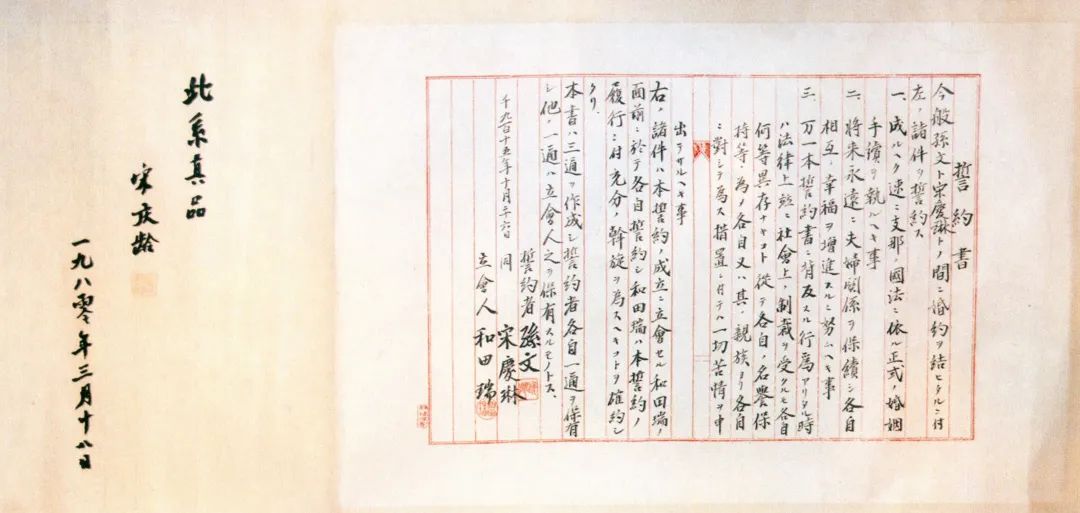 誓約書
今般孫文ト宋慶琳トノ間ニ婚約ヲ結ヒタルニ付
左ノ諸件ヲ誓約ス
一、成ルヘク速ニ支那ノ國法ニ依ル正式ノ婚姻
手續ヲ執ルヘキ事
二、將来永遠ニ夫婦関係ヲ保續シ各自
相互ノ幸福ヲ増進スルニ努ムヘキ事
三、万一本誓約書ニ背反スル行為アリタル時
ハ法律上竝ニ社會上ノ制裁ヲ受クルモ各自
何等異存ナキコト從テ各自ノ名譽保
持等ノ為メ各自又ハ其ノ親族ヨリ各自
ニ對シテ為ス措置ニ付テハ一切苦情ヲ申
出テサルヘキ事
右ノ諸件ハ本誓約ノ成立ニ立會セル和田瑞ノ
面前ニ於テ各自誓約シ和田瑞ハ本誓約ノ
履行ニ付充分ノ斡旋ヲ為スヘキコトヲ確約シ
タリ
本書ハ三通ヲ作成シ誓約者各自一通ヲ保有
シ他ノ一通ハ立會人之ヲ保有スルモノトス
誓約者 孫文
千九百十五年十月二六日 同 宋慶琳
立會人 和田瑞
此系真品
宋庆龄
一九八零年三月十八日